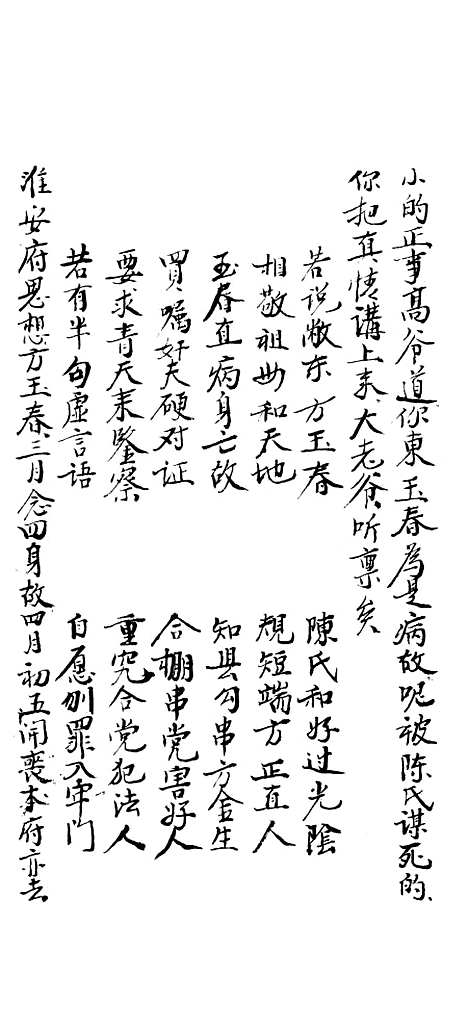 小的正事高爷道你東玉春為是病故呢被陈氏谋死的、
你把真、情講上来、大老爷、听禀矣
若说敝东方玉春　陳氏和好过光陰
相敬祖母和天地　規短端方正直人
玉春直病身亡故　知县勾串方金生
買嘱奸夫硬对证　合棚串党害好人
要求青天来鑒察　重究合党犯法人
若有半句虚言語　自愿刎罪入军门
淮安府思想方玉春、三月念四身故四月初五開喪本府亦去